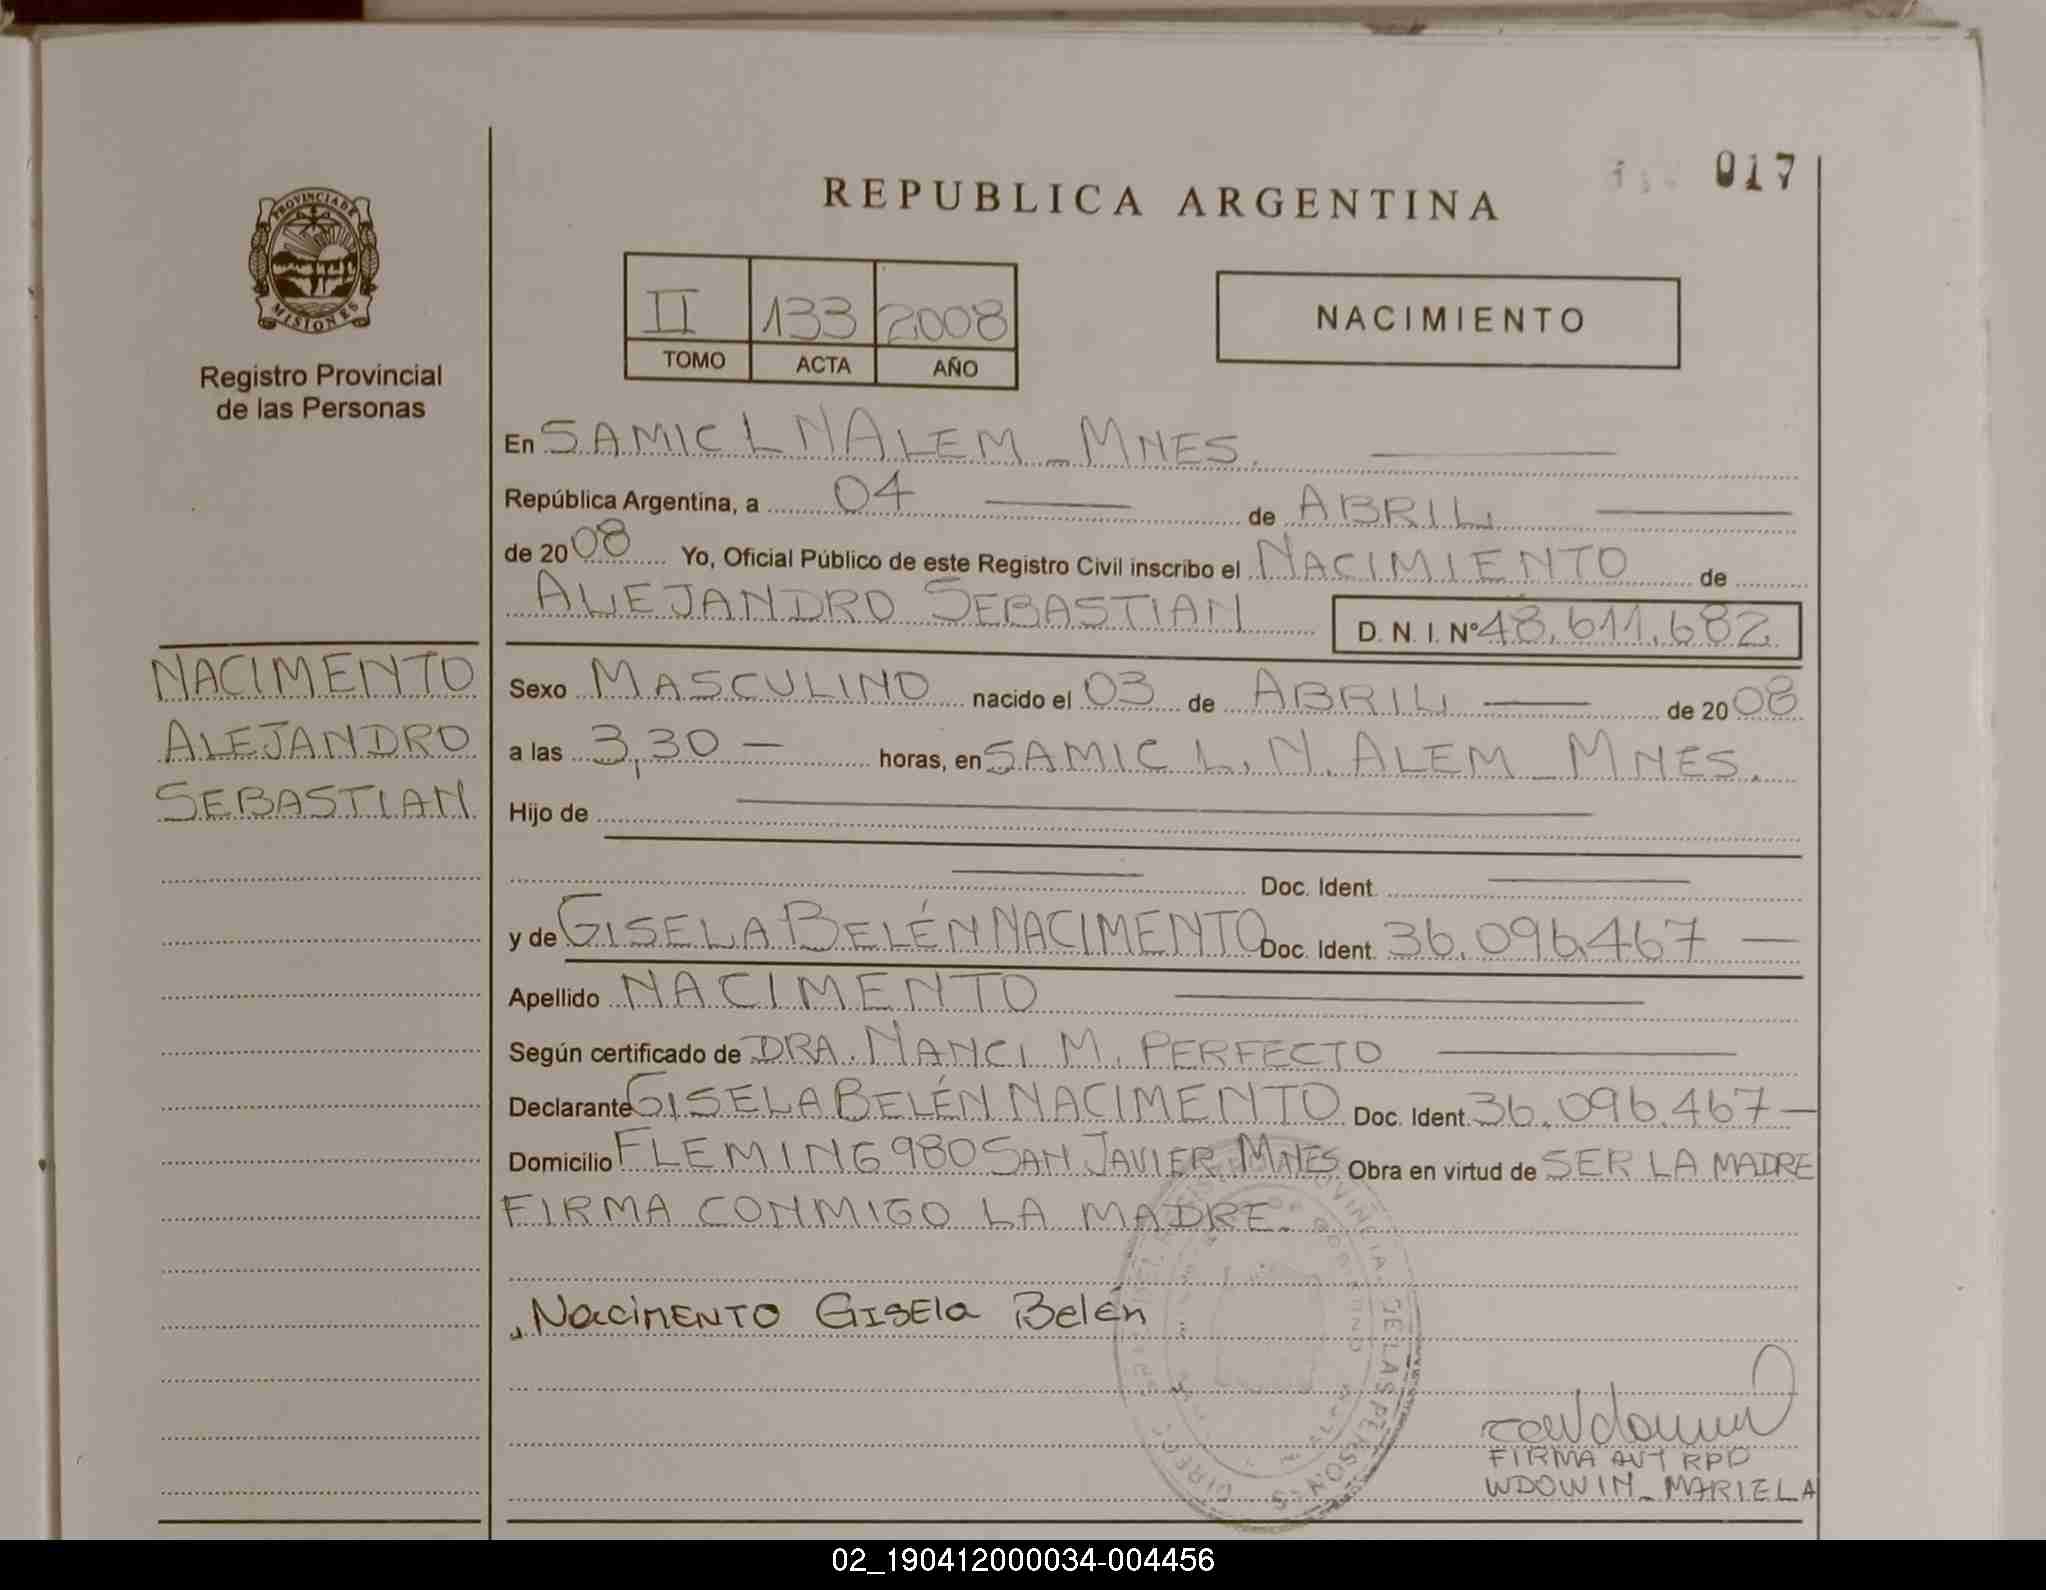 017
REPUBLICA ARGENTINA
PROVINCIA DE
MISIONES
Registro Provincial
de las Personas
II 133 2008
TOMO ACTA AÑO
NACIMIENTO
En SAMIC L N ALEM - MNES.
República Argentina, a 04 de ABRIL
de 2008 Yo, Oficial Público de este Registro Civil inscribo el NACIMIENTO de
ALEJANDRO SEBASTIAN D. N. I. Nº 48.611.682
NACIMENTO
ALEJANDRO
SEBASTIAN
Sexo MASCULINO nacido el 03 de ABRIL de 2008
a las 3,30 - horas, en SAMIC L. N. ALEM - MNES.
Hijo de
Doc. Ident.
y de GISELA BELÉN NACIMENTO Doc. Ident. 36.096.467 -
Apellido NACIMENTO
Según certificado de DRA. NANCI M. PERFECTO
Declarante GISELA BELÉN NACIMENTO Doc. Ident. 36.096.467 -
Domicilio FLEMING 980 SAN JAVIER MNES Obra en virtud de SER LA MADRE
FIRMA CONMIGO LA MADRE.
Nacimento Gisela Belén
FIRMA AUT RPP
WDOWIN - MARIELA
02_190412000034-004456